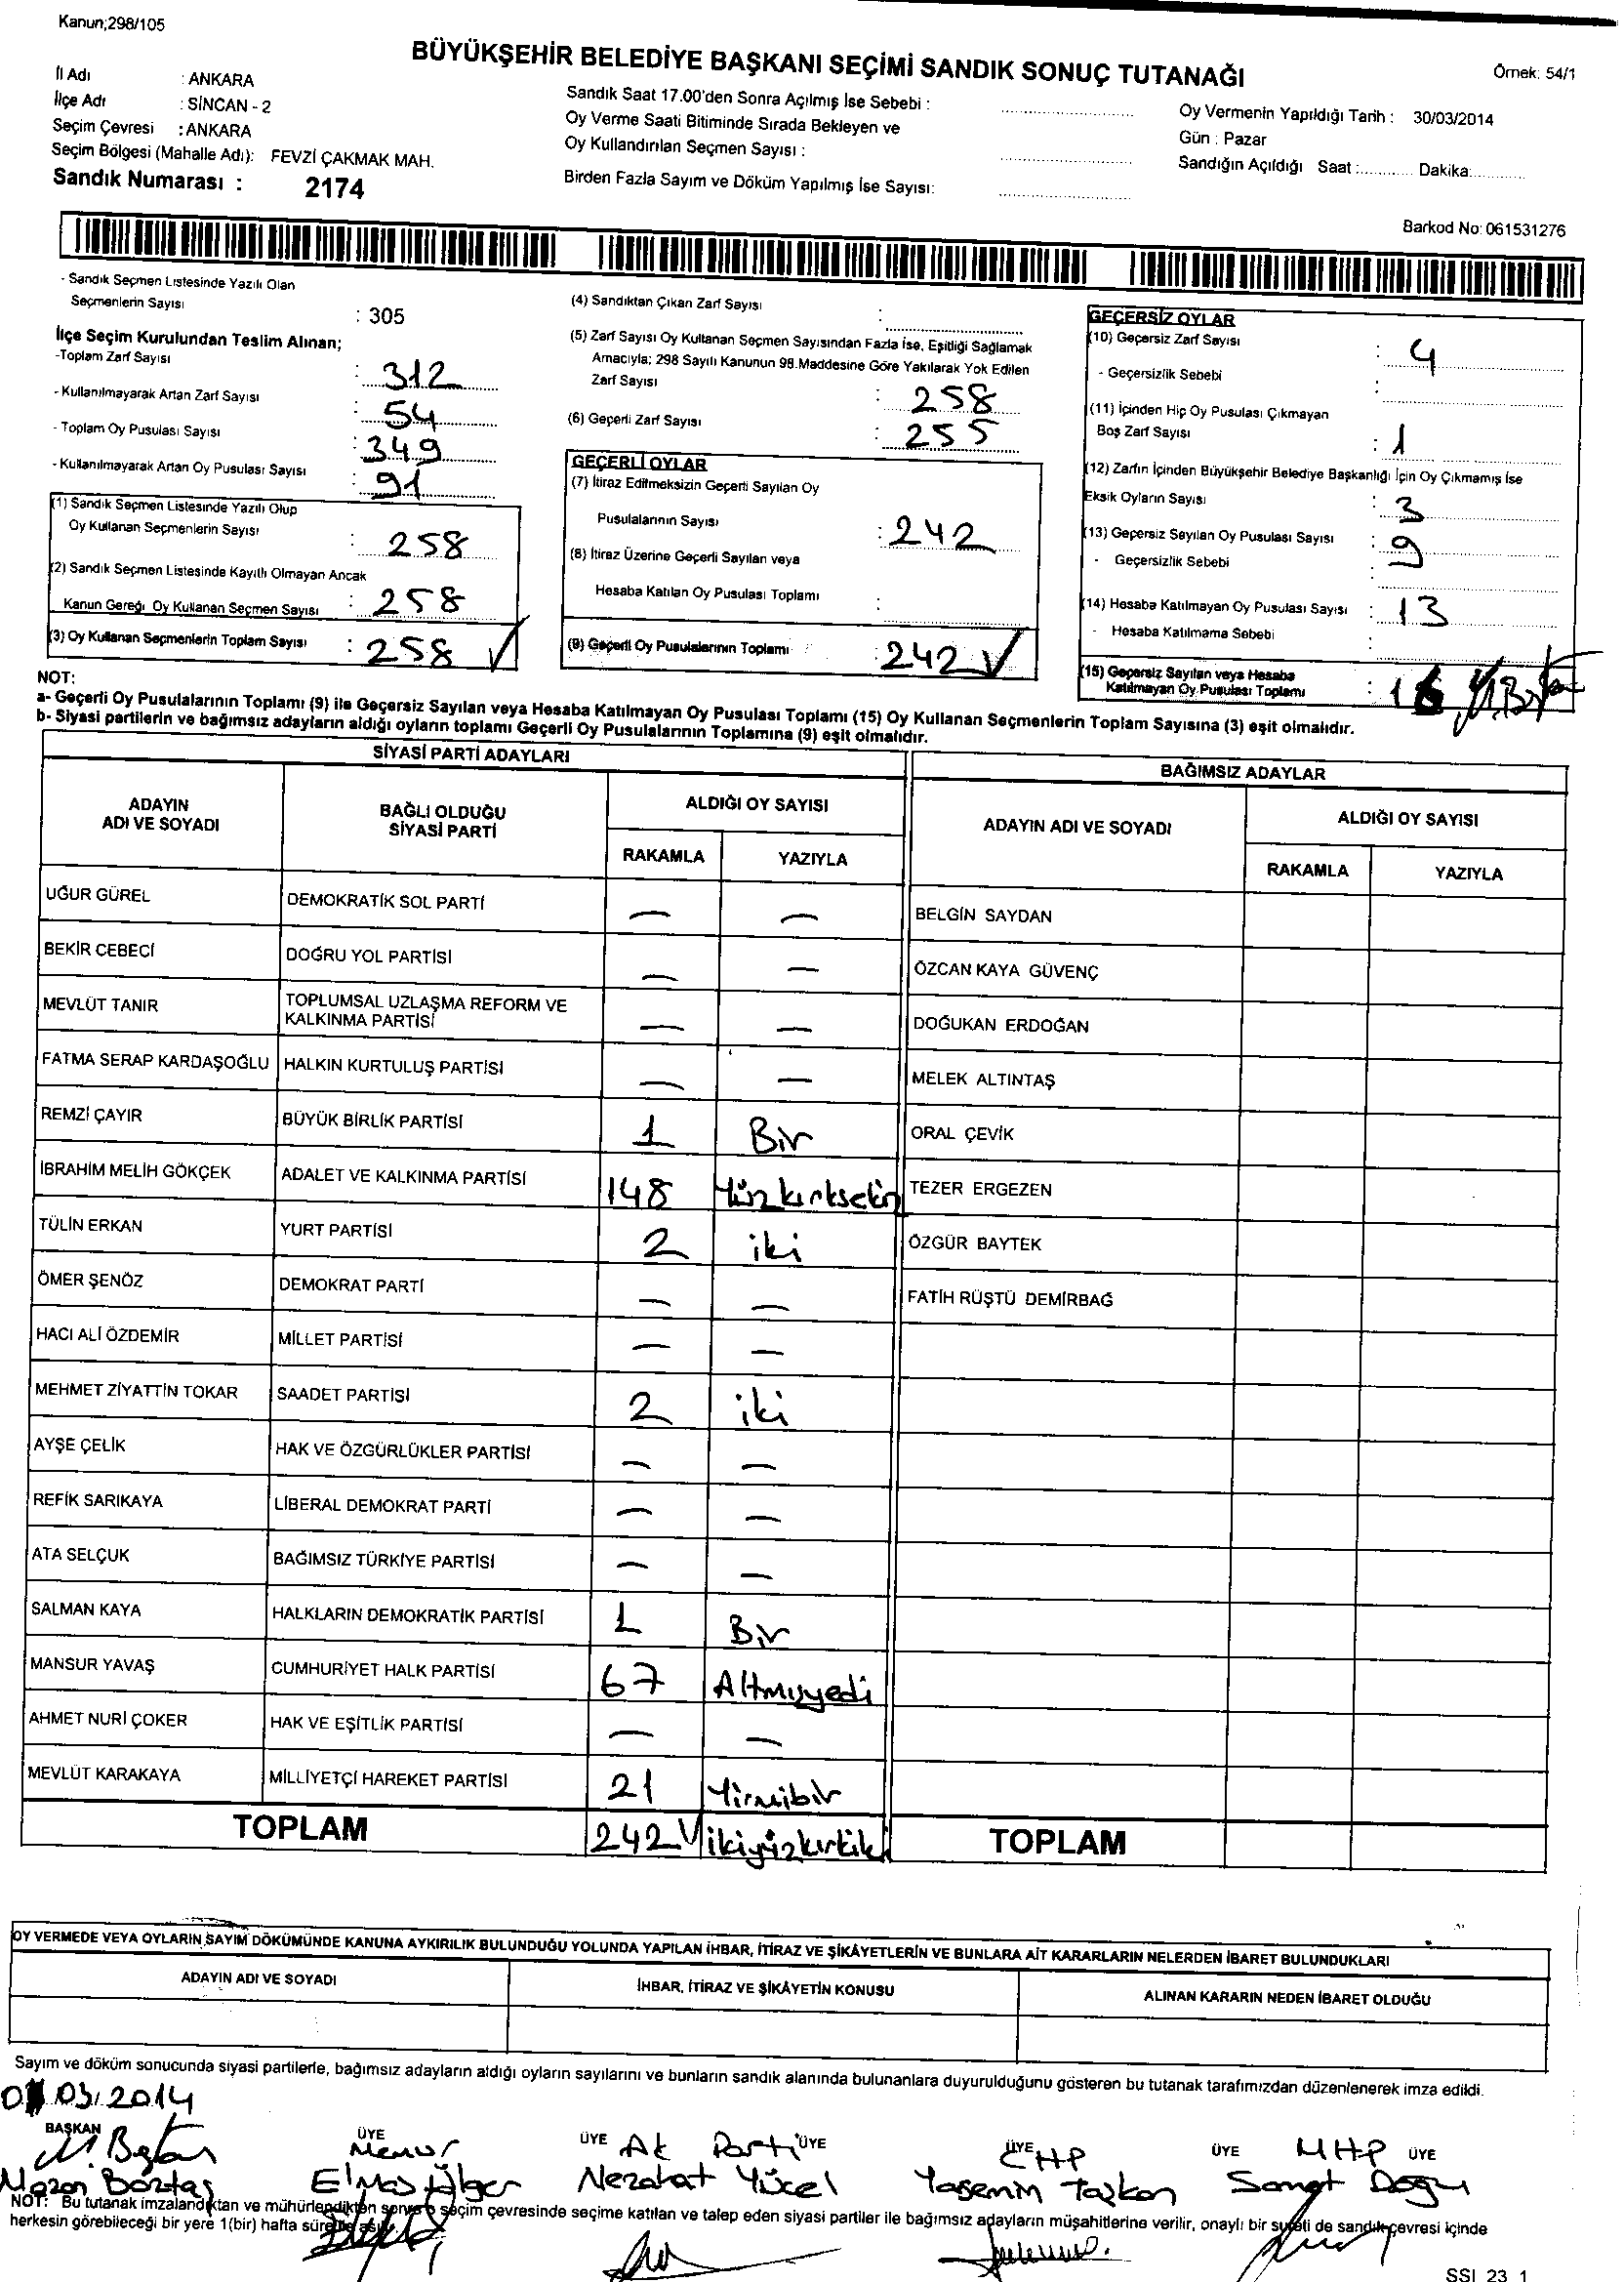 Kanun;298/105
BÜYÜKŞEHİR BELEDİYE BAŞKANI SEÇİMİ SANDIK SONUÇ TUTANAĞI
Örnek: 54/1
İl Adı : ANKARA
İlçe Adı : SİNCAN - 2
Seçim Çevresi : ANKARA
Seçim Bölgesi (Mahalle Adı): FEVZİ ÇAKMAK MAH.
Sandık Numarası : 2174
Sandık Saat 17.00'den Sonra Açılmış İse Sebebi :
Oy Verme Saati Bitiminde Sırada Bekleyen ve
Oy Kullandırılan Seçmen Sayısı :
Birden Fazla Sayım ve Döküm Yapılmış İse Sayısı:
Oy Vermenin Yapıldığı Tarih : 30/03/2014
Gün : Pazar
Sandığın Açıldığı Saat :............ Dakika:............
Barkod No: 061531276
- Sandık Seçmen Listesinde Yazılı Olan
Seçmenlerin Sayısı : 305
İlçe Seçim Kurulundan Teslim Alınan;
-Toplam Zarf Sayısı : 312
- Kullanılmayarak Artan Zarf Sayısı : 54
- Toplam Oy Pusulası Sayısı : 349
- Kullanılmayarak Artan Oy Pusulası Sayısı : 91
(1) Sandık Seçmen Listesinde Yazılı Olup
Oy Kullanan Seçmenlerin Sayısı : 258
(2) Sandık Seçmen Listesinde Kayıtlı Olmayan Ancak
Kanun Gereği Oy Kullanan Seçmen Sayısı : 258
(3) Oy Kullanan Seçmenlerin Toplam Sayısı : 258
(4) Sandıktan Çıkan Zarf Sayısı :
(5) Zarf Sayısı Oy Kullanan Seçmen Sayısından Fazla İse, Eşitliği Sağlamak
Amacıyla; 298 Sayılı Kanunun 98.Maddesine Göre Yakılarak Yok Edilen
Zarf Sayısı : 258
(6) Geçerli Zarf Sayısı : 255
GEÇERLİ OYLAR
(7) İtiraz Edilmeksizin Geçerli Sayılan Oy
Pusulalarının Sayısı : 242
(8) İtiraz Üzerine Geçerli Sayılan veya
Hesaba Katılan Oy Pusulası Toplamı :
(9) Geçerli Oy Pusulalarının Toplamı : 242
GEÇERSİZ OYLAR
(10) Geçersiz Zarf Sayısı : 4
- Geçersizlik Sebebi :
(11) İçinden Hiç Oy Pusulası Çıkmayan
Boş Zarf Sayısı : 1
(12) Zarfın İçinden Büyükşehir Belediye Başkanlığı İçin Oy Çıkmamış İse
Eksik Oyların Sayısı : 3
(13) Geçersiz Sayılan Oy Pusulası Sayısı : 9
- Geçersizlik Sebebi :
(14) Hesaba Katılmayan Oy Pusulası Sayısı : 13
- Hesaba Katılmama Sebebi :
(15) Geçersiz Sayılan veya Hesaba
Katılmayan Oy Pusulası Toplamı :
NOT:
a- Geçerli Oy Pusulalarının Toplamı (9) ile Geçersiz Sayılan veya Hesaba Katılmayan Oy Pusulası Toplamı (15) Oy Kullanan Seçmenlerin Toplam Sayısına (3) eşit olmalıdır.
b- Siyasi partilerin ve bağımsız adayların aldığı oyların toplamı Geçerli Oy Pusulalarının Toplamına (9) eşit olmalıdır.
SİYASİ PARTİ ADAYLARI
ADAYIN ADI VE SOYADI BAĞLI OLDUĞU SİYASİ PARTİ ALDIĞI OY SAYISI
RAKAMLA YAZIYLA
UĞUR GÜREL DEMOKRATİK SOL PARTİ — —
BEKİR CEBECİ DOĞRU YOL PARTİSİ — —
MEVLÜT TANIR TOPLUMSAL UZLAŞMA REFORM VE KALKINMA PARTİSİ — —
FATMA SERAP KARDAŞOĞLU HALKIN KURTULUŞ PARTİSİ — —
REMZİ ÇAYIR BÜYÜK BİRLİK PARTİSİ 1 Bir
İBRAHİM MELİH GÖKÇEK ADALET VE KALKINMA PARTİSİ 148 Yüzkırksekiz
TÜLİN ERKAN YURT PARTİSİ 2 iki
ÖMER ŞENÖZ DEMOKRAT PARTİ — —
HACI ALİ ÖZDEMİR MİLLET PARTİSİ — —
MEHMET ZİYATTİN TOKAR SAADET PARTİSİ 2 iki
AYŞE ÇELİK HAK VE ÖZGÜRLÜKLER PARTİSİ — —
REFİK SARIKAYA LİBERAL DEMOKRAT PARTİ — —
ATA SELÇUK BAĞIMSIZ TÜRKİYE PARTİSİ — —
SALMAN KAYA HALKLARIN DEMOKRATİK PARTİSİ 1 Bir
MANSUR YAVAŞ CUMHURİYET HALK PARTİSİ 67 Altmışyedi
AHMET NURİ ÇOKER HAK VE EŞİTLİK PARTİSİ — —
MEVLÜT KARAKAYA MİLLİYETÇİ HAREKET PARTİSİ 21 Yirmibir
TOPLAM 242 ikiyüzkırkiki
BAĞIMSIZ ADAYLAR
ADAYIN ADI VE SOYADI ALDIĞI OY SAYISI
RAKAMLA YAZIYLA
BELGİN SAYDAN
ÖZCAN KAYA GÜVENÇ
DOĞUKAN ERDOĞAN
MELEK ALTINTAŞ
ORAL ÇEVİK
TEZER ERGEZEN
ÖZGÜR BAYTEK
FATİH RÜŞTÜ DEMİRBAĞ
TOPLAM
OY VERMEDE VEYA OYLARIN SAYIM DÖKÜMÜNDE KANUNA AYKIRILIK BULUNDUĞU YOLUNDA YAPILAN İHBAR, İTİRAZ VE ŞİKÂYETLERİN VE BUNLARA AİT KARARLARIN NELERDEN İBARET BULUNDUKLARI
ADAYIN ADI VE SOYADI İHBAR, İTİRAZ VE ŞİKÂYETİN KONUSU ALINAN KARARIN NEDEN İBARET OLDUĞU
Sayım ve döküm sonucunda siyasi partilerle, bağımsız adayların aldığı oyların sayılarını ve bunların sandık alanında bulunanlara duyurulduğunu gösteren bu tutanak tarafımızdan düzenlenerek imza edildi.
03.2014
BAŞKAN ÜYE ÜYE ÜYE ÜYE ÜYE ÜYE
Memur Ak Parti CHP MHP
Elmas Ülger Nezahat Yücel Yasemin Taşkan Samet Doğu
NOT: Bu tutanak imzalandıktan ve mühürlendikten sonra o seçim çevresinde seçime katılan ve talep eden siyasi partiler ile bağımsız adayların müşahitlerine verilir, onaylı bir sureti de sandık çevresi içinde
herkesin görebileceği bir yere 1(bir) hafta süreyle asılır.
SSI 23 1